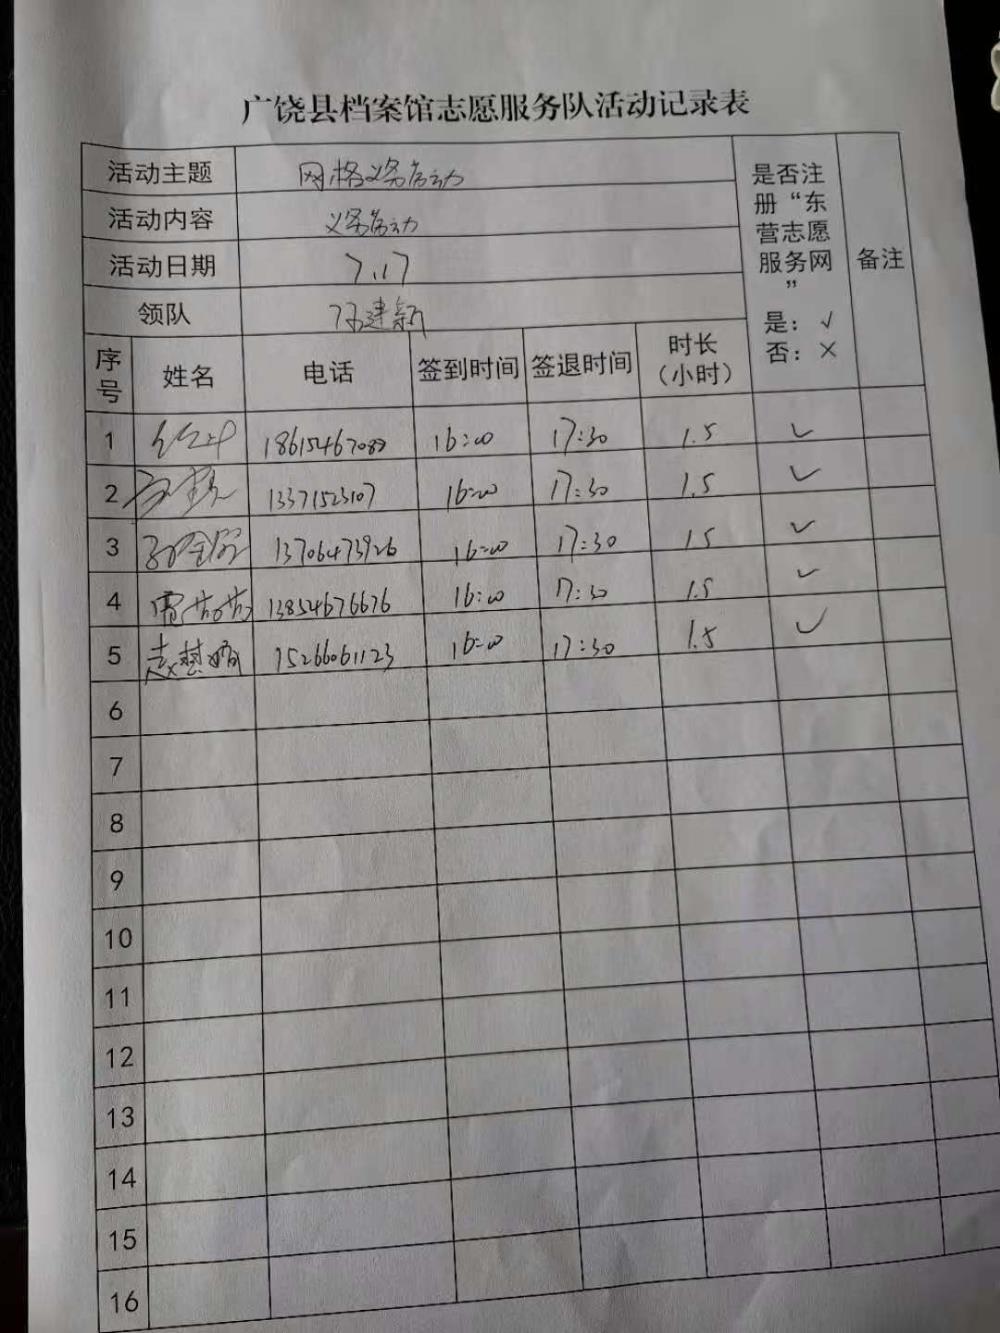 广饶县档案馆志愿服务队活动记录表
活动主题 网格义务劳动
活动内容 义务劳动
活动日期 7.17
领队 建新
是否注册“东营志愿服务网”
是：√
否：×
备注
序号 姓名 电话 签到时间 签退时间 时长（小时）
1 16:00 17:30 1.5 ✓
2 13371523107 16:00 17:30 1.5 ✓
3 13706473926 16:00 17:30 1.5 ✓
4 13854676676 16:00 17:30 1.5 ✓
5 赵慧娇 15266061123 16:00 17:30 1.5 ✓
6
7
8
9
10
11
12
13
14
15
16